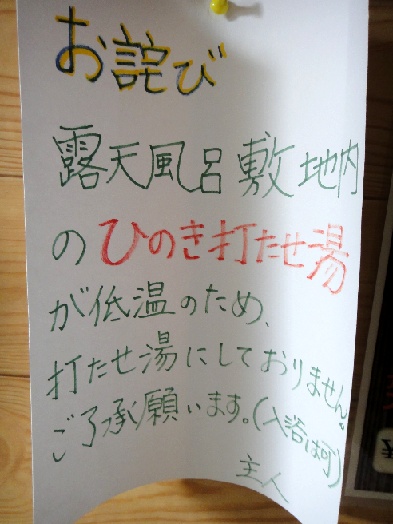 お詫び
露天風呂敷地内
のひのき打たせ湯
が低温のため、
打たせ湯にしておりません。
ご了承願います。(入浴は可)
主人